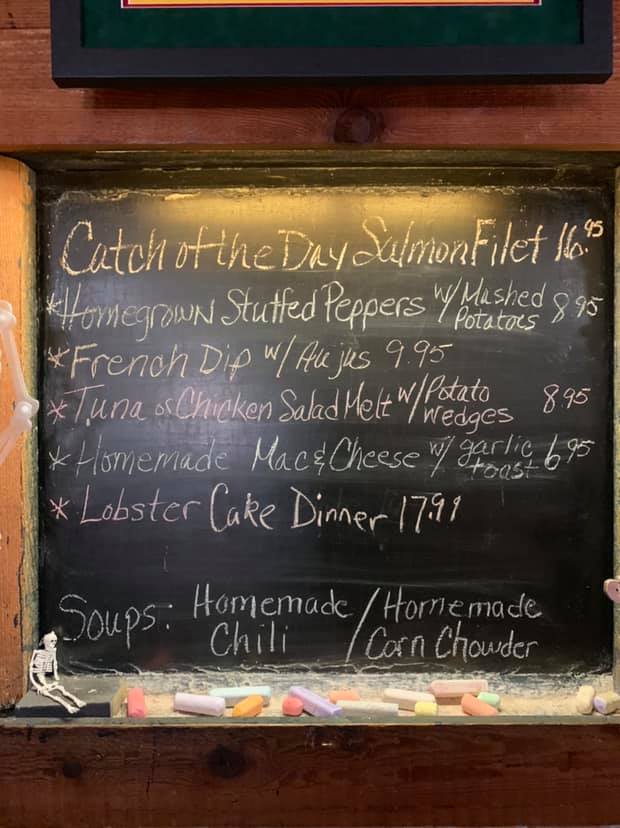 Catch of the Day Salmon Filet 16.95
*Homegrown Stuffed Peppers w/ Mashed Potatoes 8 95
*French Dip w/ Au jus 9.95
*Tuna or Chicken Salad Melt w/ Potato Wedges 8.95
*Homemade Mac & Cheese w/ garlic toast 6 95
*Lobster Cake Dinner 17.99
Soups: Homemade Chili / Homemade Corn Chowder